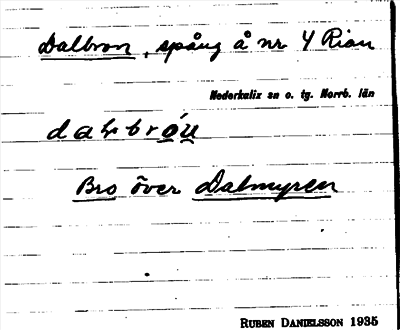 Dalbron, spång å nr 4 Rian
Nederkalix sn o. tg. Norrb. län
Bro över Dalmyren
RUBEN DANIELSSON 1935